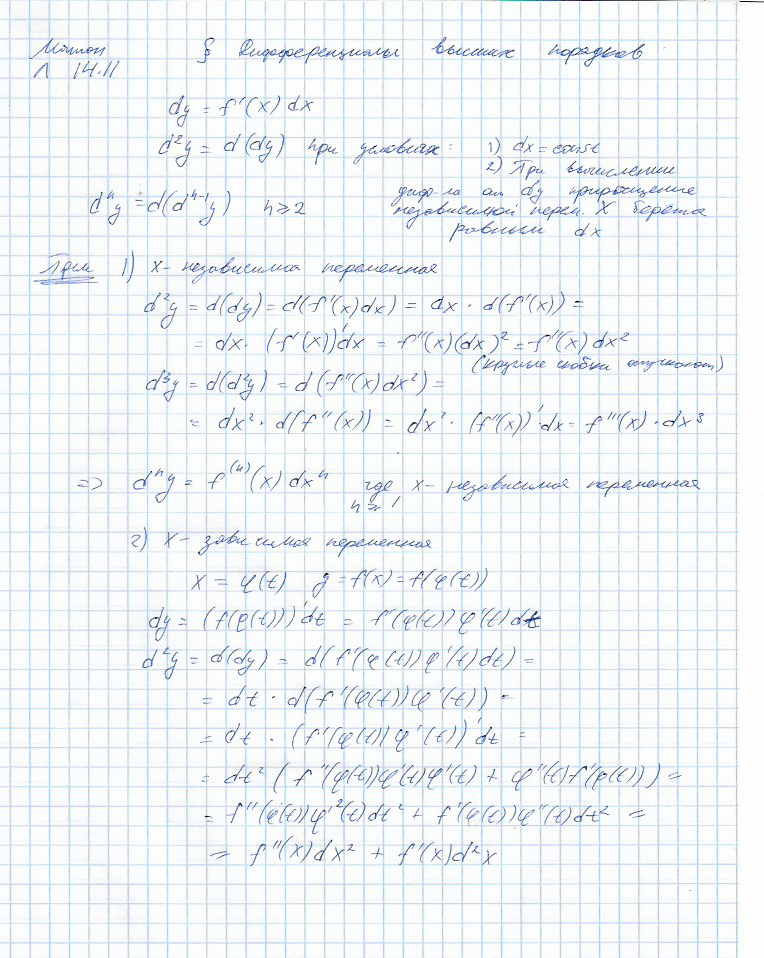 Матан § Дифференциалы высших порядков
Л 14.11
dy = f'(x) dx
d²y = d(dy) при условиях: 1) dx = const
2) При вычислении
диф-ла от dy приращение
dⁿy = d(dⁿ⁻¹y) n ≥ 2 независимой перем. X берется
равным dx
Прим 1) x - независимая переменная
d²y = d(dy) = d(f'(x)dx) = dx · d(f'(x)) =
= dx · (f'(x))'dx = f''(x)(dx)² = f''(x)dx²
(круглые скобки опускают)
d³y = d(d²y) = d(f''(x)dx²) =
= dx² · d(f''(x)) = dx² · (f''(x))'dx = f'''(x) · dx³
=> dⁿy = f⁽ⁿ⁾(x) dxⁿ где x - независимая переменная
n ≥ 1
2) x - зависимая переменная
x = φ(t) y = f(x) = f(φ(t))
dy = (f(φ(t)))'dt = f'(φ(t))φ'(t)dt
d²y = d(dy) = d(f'(φ(t))φ'(t)dt) =
= dt · d(f'(φ(t))φ'(t)) =
= dt · (f'(φ(t))φ'(t))'dt =
= dt² (f''(φ(t))φ'(t)φ'(t) + φ''(t)f'(φ(t))) =
= f''(φ(t))φ'²(t)dt² + f'(φ(t))φ''(t)dt² =
= f''(x)dx² + f'(x)d²x